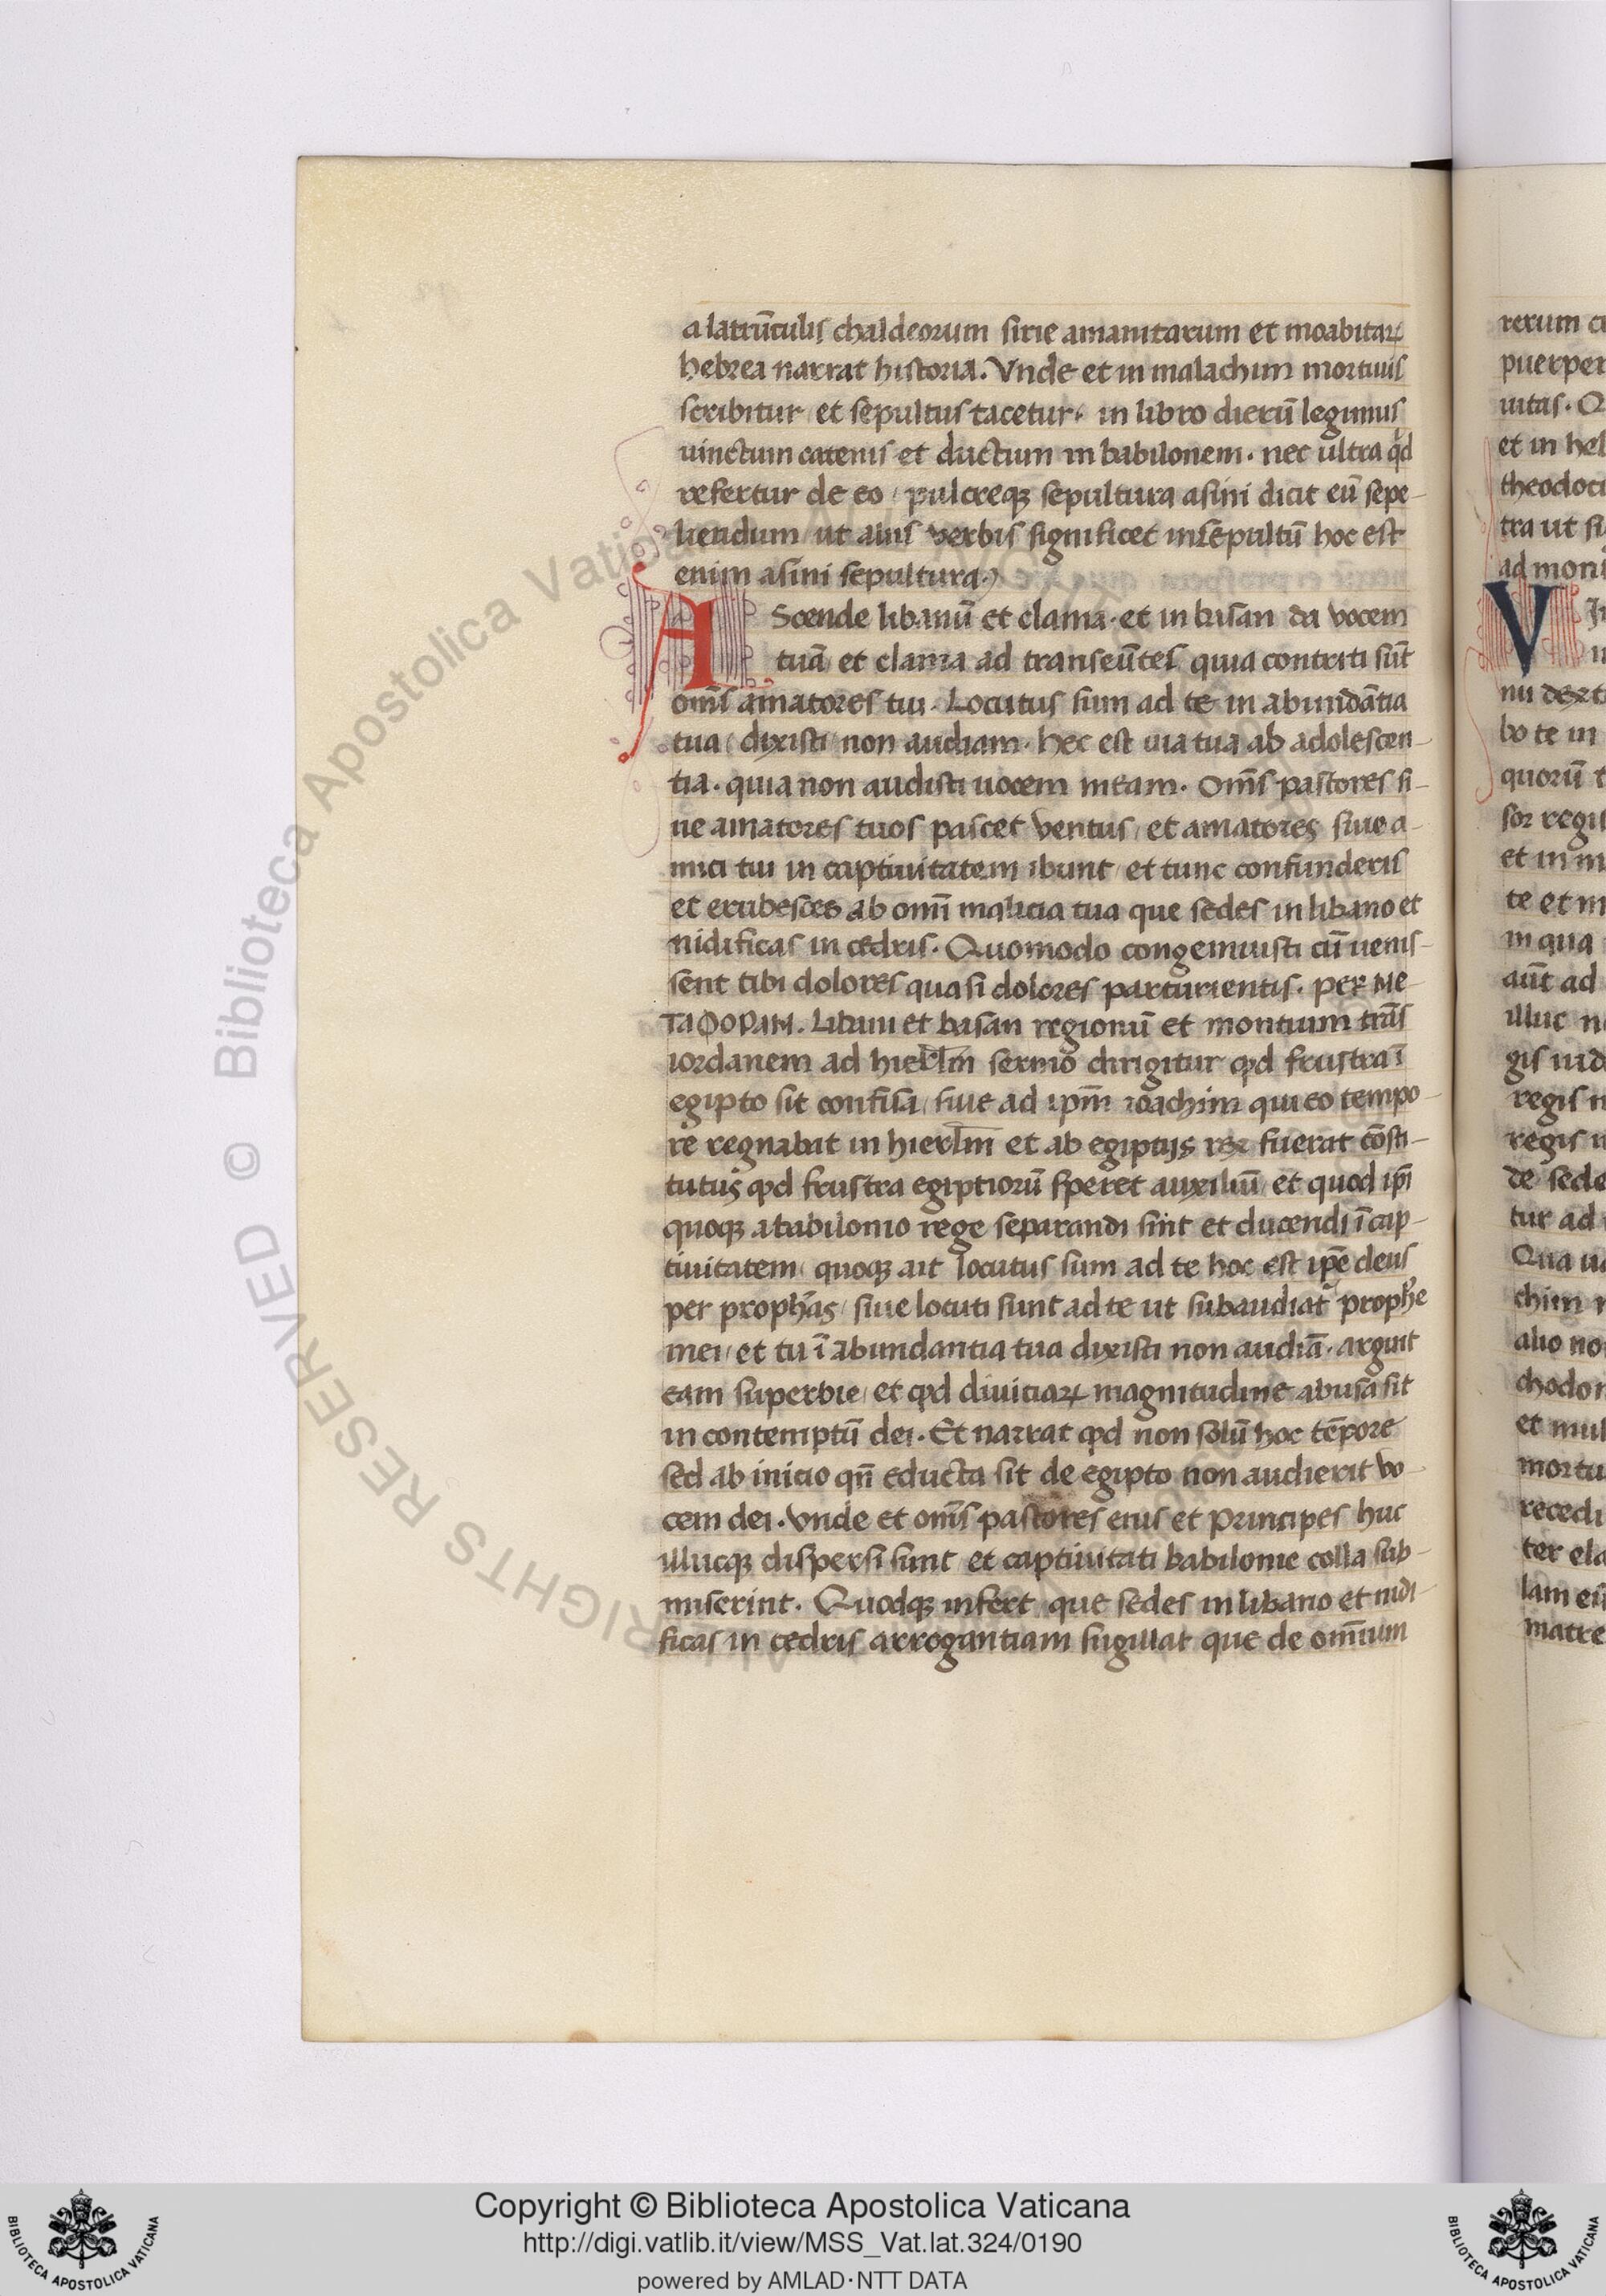 a latrūculis chaldeorum sirie amanitarum et moabitaꝝ
hebrea narrat historia. Vnde et in malachim mortuus
scribitur et sepultus tacetur. in libro dierū legimus
uinctum catenis et ductum in babilonem. nec ultra qd
refertur de eo / pulcreqꝫ sepultura asini dicit eū sepe-
liendum ut aliis verbis significet insepultū hoc est
enim asini sepultura.
AScende libanū et clama. et in basan da vocem
tuā et clama ad transeūtes quia contriti sūt
om̄s amatores tui. Locutus sum ad te in abundātia
tua / dixisti non audiam. hec est uia tua ab adolescen-
tia. quia non audisti uocem meam. Om̄s pastores si-
ue amatores tuos pascet ventus / et amatores siue a-
mici tui in captiuitatem ibunt / et tunc confunderis
et erubesces ab omī malicia tua que sedes in libano et
nidificas in cedris. Quomodo congemuisti cū uenis-
sent tibi dolores quasi dolores parturientis. PER ME-
TAΦOPAN. Libani et basan regionū et montium trās
iordanem ad hierlm̄ sermo dirigitur qd frustra ī
egipto sit confisa / siue ad ipm̄ ioachim qui eo tempo-
re regnabat in hierlm̄ et ab egiptijs rex fuerat cōsti-
tutus qd frustra egiptiorū speret auxiliū et quod ipī
quoqꝫ a babilonio rege separandi sint et ducendi ī cap-
tiuitatem / quoqꝫ ait locutus sum ad te hoc est ipē deus
per prophās / siue locuti sunt ad te ut subaudiat̄ prophe
mei / et tu ī abundantia tua dixisti non audiā. arguit
eam superbie / et qd diuiciaꝝ magnitudine abusa sit
in contemptū dei. Et narrat qd non solū hoc tēpore
sed ab inicio qn̄ educta sit de egipto non audierit vo-
cem dei. Vnde et om̄s pastores eius et principes huc
illucqꝫ dispersi sunt et captiuitati babilonie colla sub-
miserint. Quodqꝫ infert que sedes in libano et nidi-
ficas in cedris arrogantiam sugillat que de omīum
rerum
puerper
uitas.
et in hel
theodoci
tra ut si
ad moni
V
nu dext
bo te in
quorū t
sor regis
et in m
te et m
in qua
aūt ad
illuc n
gis iud
regis n
regis
de sede
tur ad
Qua
chim
alio no
chodon
et mul
mortu
recedi
ter ela
lam
matre
© Biblioteca Apostolica Vaticana
RIGHTS RESERVED
Copyright © Biblioteca Apostolica Vaticana
http://digi.vatlib.it/view/MSS_Vat.lat.324/0190
powered by AMLAD·NTT DATA
BIBLIOTECA APOSTOLICA VATICANA
BIBLIOTECA APOSTOLICA VATICANA